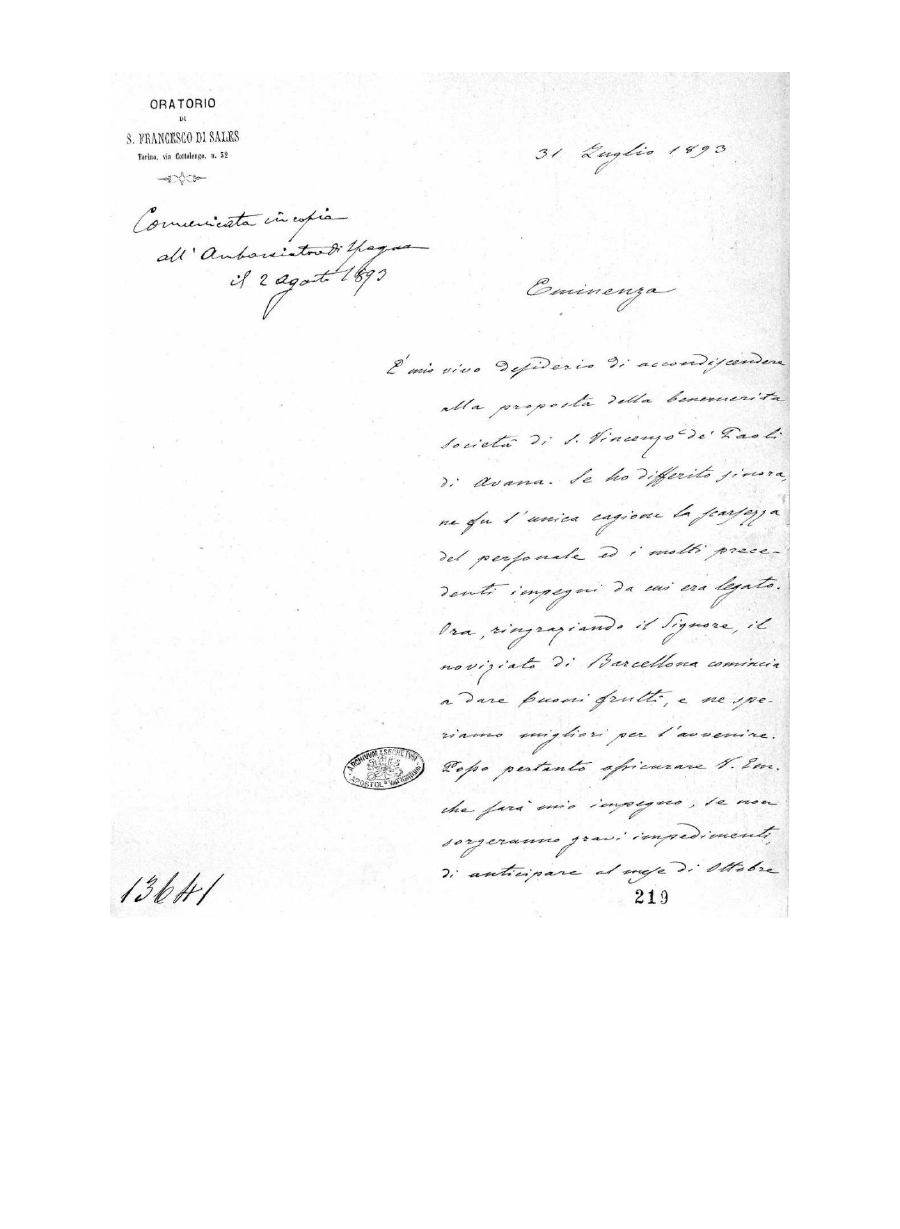 ORATORIO
DI
S. FRANCESCO DI SALES
Torino, via Cottolengo, n. 32
31 Luglio 1893
Comunicata in copia
all'Ambasciatore di Spagna
il 2 Agosto 1893
Eminenza
È mio vivo desiderio di accondiscendere
alla proposta della benemerita
società di S. Vincenzo de' Paoli
di Avana. Se ho differito sinora,
ne fu l'unica cagione la scarsezza
del personale ed i molti prece-
denti impegni da cui era legato.
Ora, ringraziando il Signore, il
noviziato di Barcellona comincia
a dare buoni frutti, e ne spe-
riamo migliori per l'avvenire.
Posso pertanto assicurare V. Em.
che sarà mio impegno, se non
sorgeranno gravi impedimenti,
di anticipare al mese di Ottobre
ARCHIVUM SECRETUM
APOSTOL. VATICANUM
13641
219